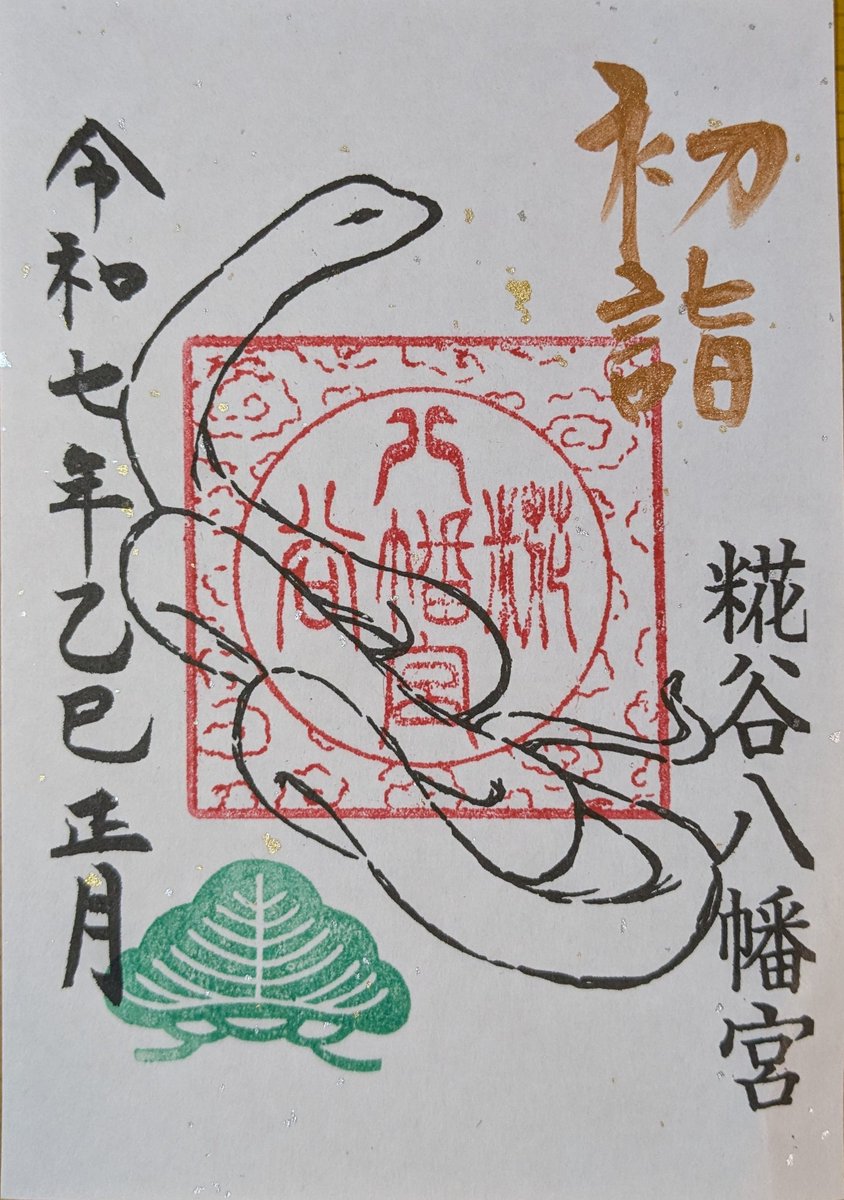 初詣
糀谷八幡宮
糀谷八幡宮
令和七年乙巳正月